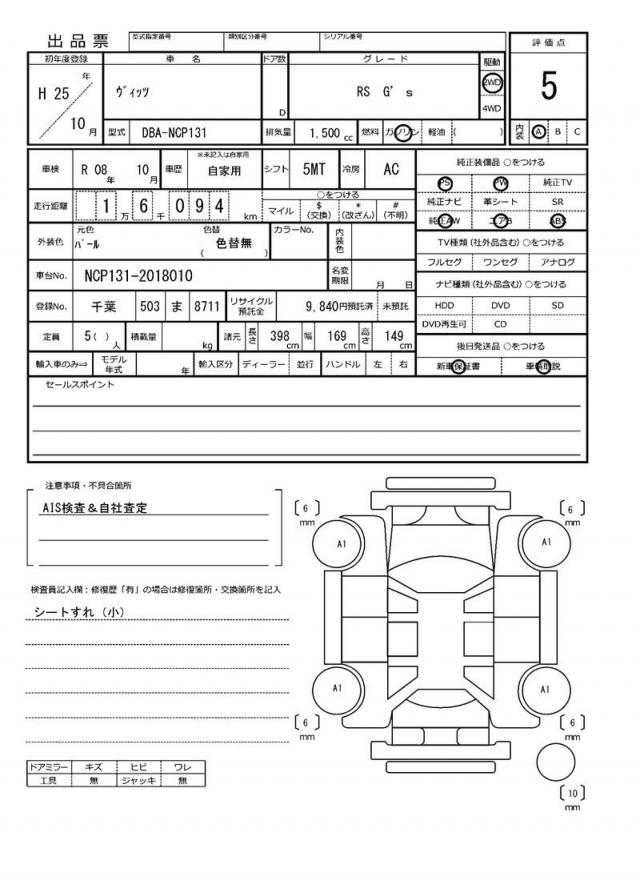 出品票 型式指定番号 類別区分番号 シリアル番号 評価点
初年度登録 車名 ドア数 グレード 駆動
H 25 年 10 月 ヴィッツ D RS G's 2WD 4WD 5
型式 DBA-NCP131 排気量 1.500 cc 燃料 ガソリン 軽油 ( ) 内装 A B C
車検 R 08 年 10 月 車歴 ※未記入は自家用 自家用 シフト 5MT 冷房 AC 純正装備品 ○をつける
PS PW 純正TV
走行距離 1 万 6 千 0 9 4 km ○をつける
マイル $ (交換) * (改ざん) # (不明)
純正ナビ 革シート SR
純正AW エアB ABS
外装色 元色 パール 色替 色替無 ( ) カラーNo. 内装色
TV種類 (社外品含む) ○をつける
フルセグ ワンセグ アナログ
車台No. NCP131-2018010 名変期限 月 日
ナビ種類 (社外品含む) ○をつける
登録No. 千葉 503 ま 8711 リサイクル預託金 9,840円預託済 未預託
HDD DVD SD
DVD再生可 CD
定員 5 ( ) 人 積載量 kg 諸元 長さ 398 cm 幅 169 cm 高さ 149 cm
後日発送品 ○をつける
輸入車のみ⇒ モデル年式 年 輸入区分 ディーラー 並行 ハンドル 左 右
新車保証書 車輌取説
セールスポイント
注意事項・不具合箇所
AIS検査＆自社査定
検査員記入欄：修復歴「有」の場合は修復箇所・交換箇所を記入
シートすれ（小）
[6] mm [6] mm
A1 A1
A1 A1
[6] mm [6] mm
[10] mm
ドアミラー キズ ヒビ ワレ
工具 無 ジャッキ 無